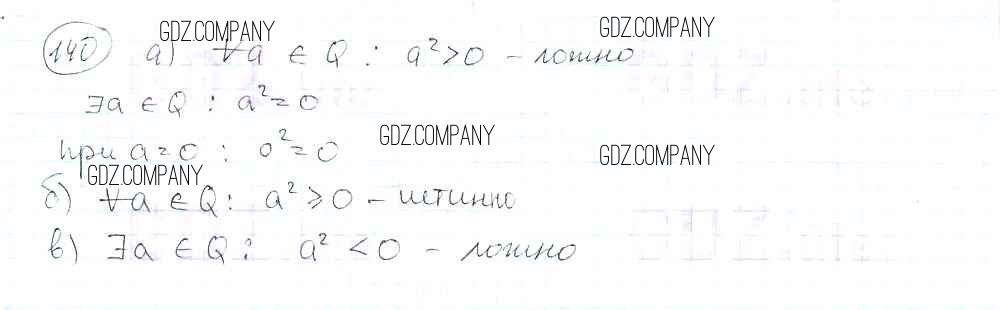 GDZ.COMPANY GDZ.COMPANY
140 а) ∀a ∈ Q : a² > 0 – ложно
∃a ∈ Q : a² = 0
GDZ.COMPANY
при a = 0 : 0² = 0
GDZ.COMPANY
GDZ.COMPANY
б) ∀a ∈ Q : a² ⩾ 0 – истинно
в) ∃a ∈ Q : a² < 0 – ложно